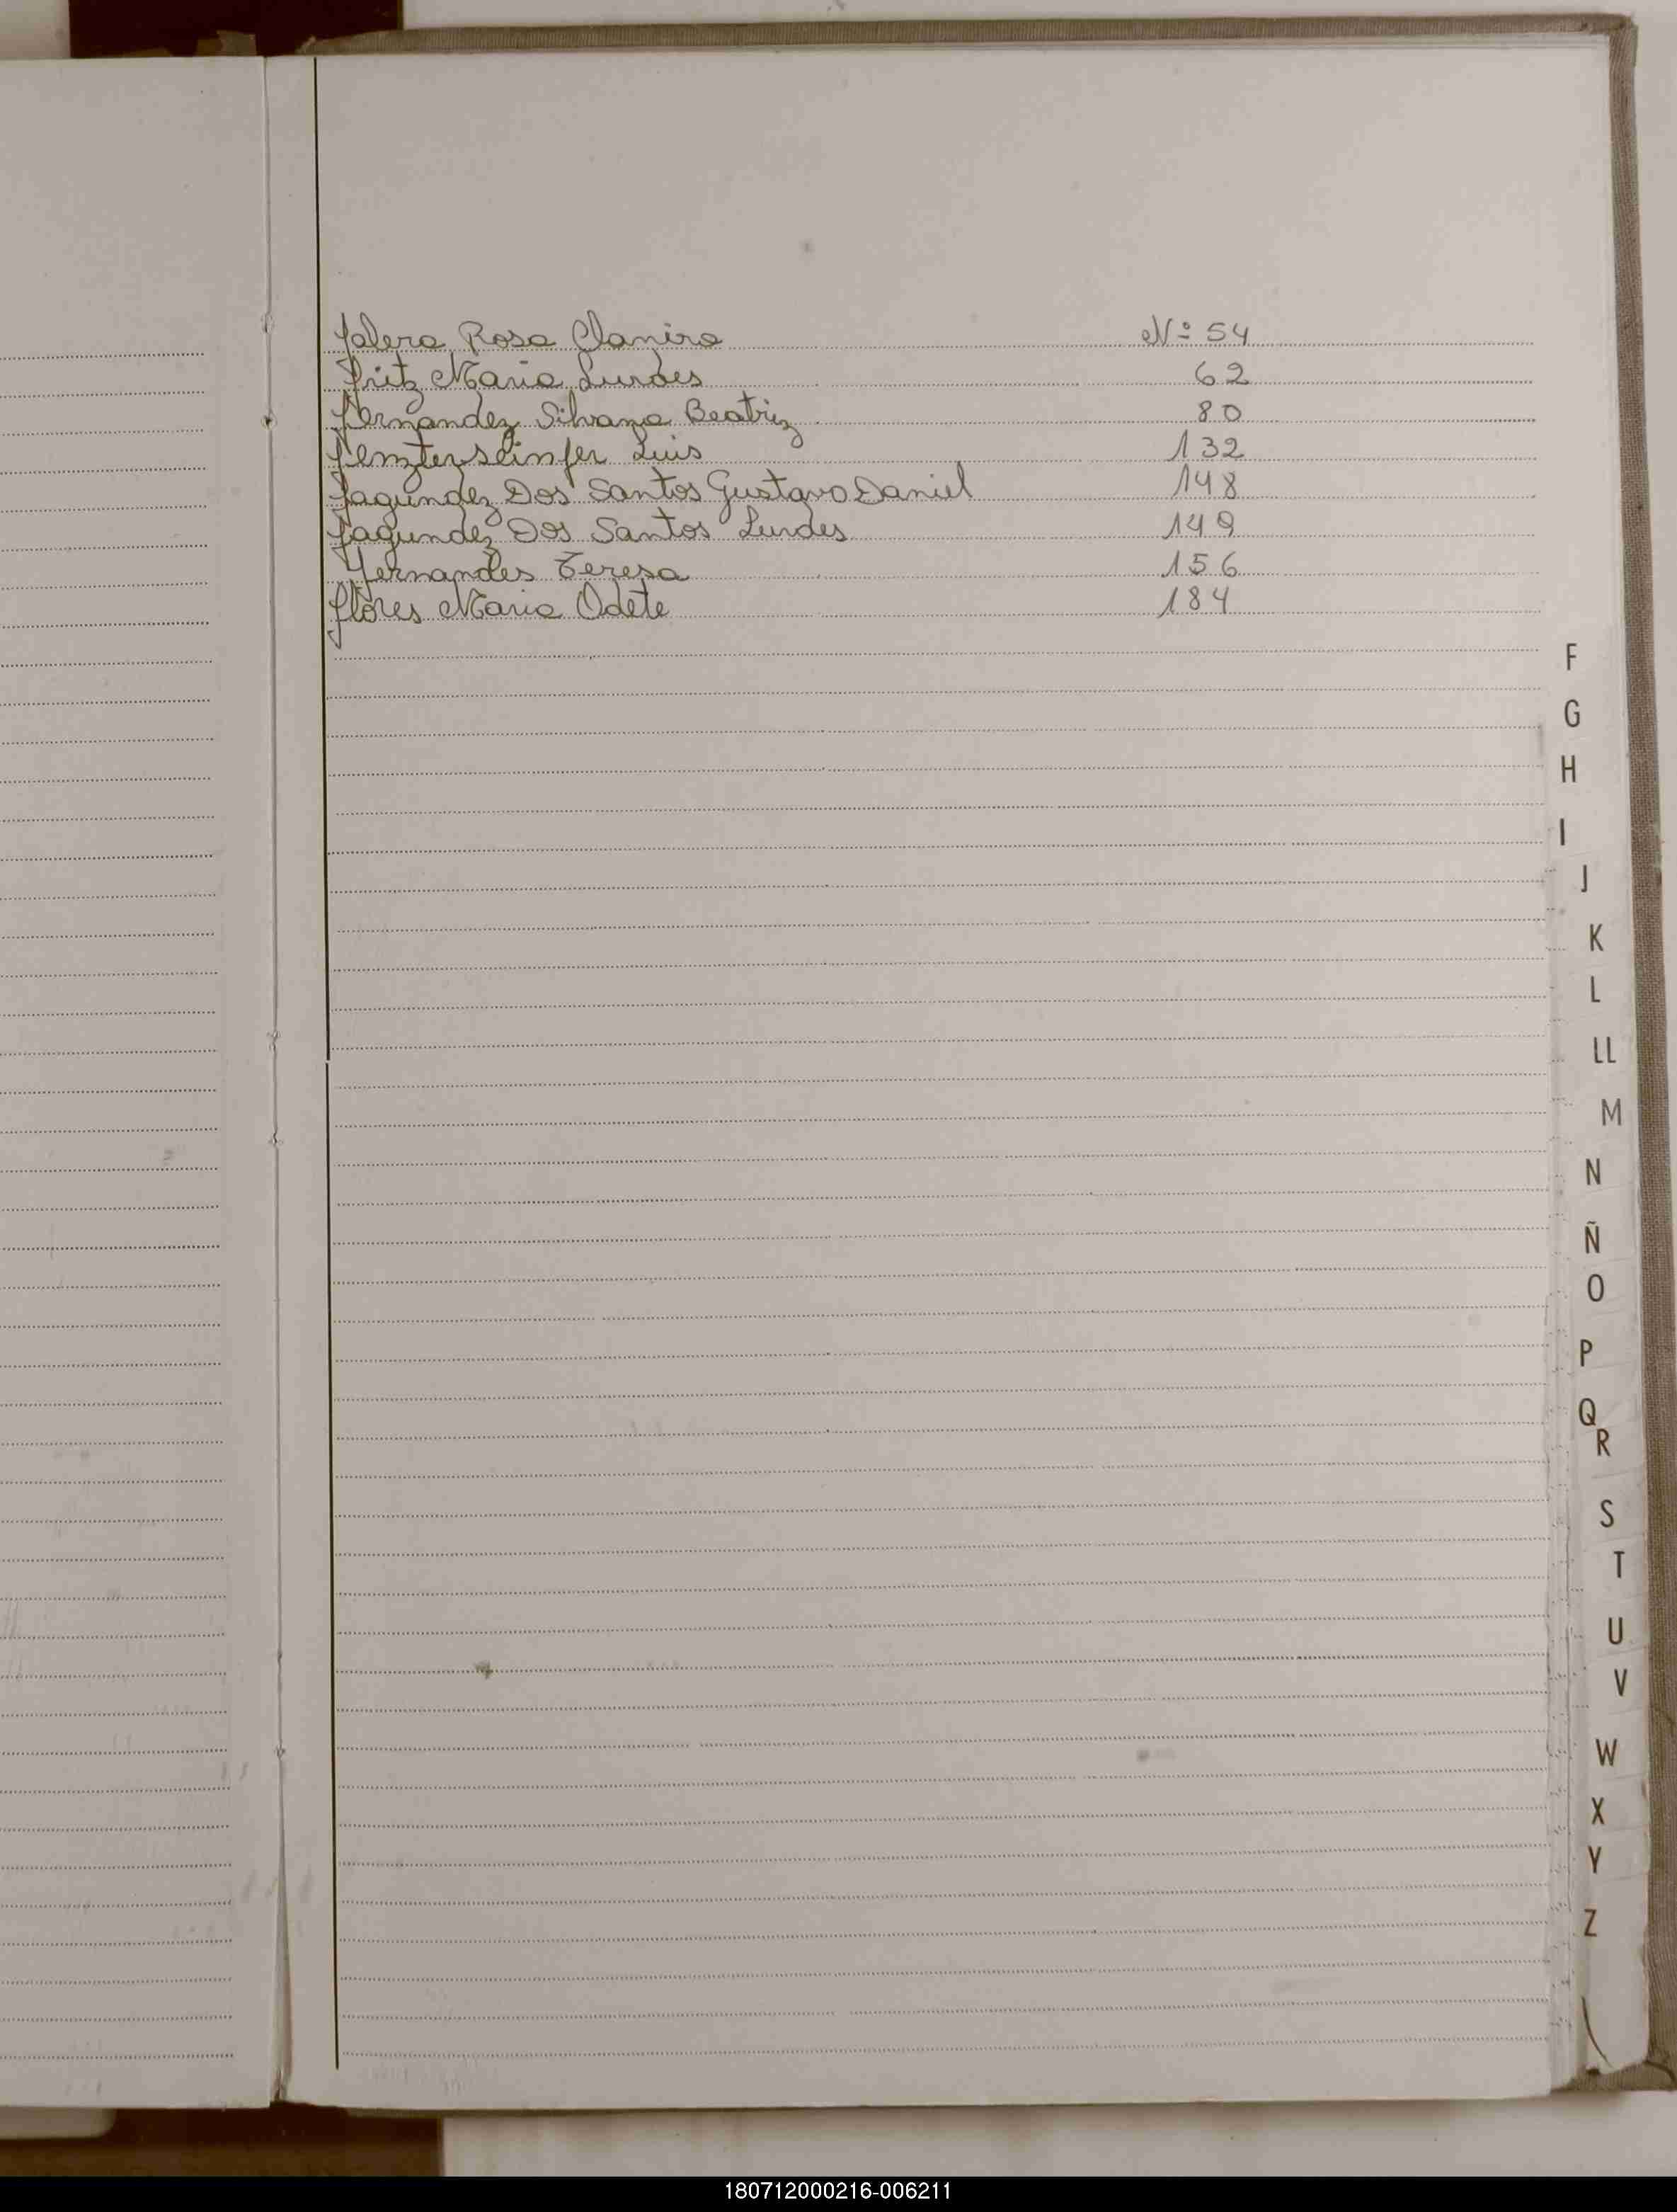 Falero Rosa Clanira Nº 54
Fritz Maria Lurdes 62
Fernandez Silvana Beatriz 80
Fenzterseinfer Luis 132
Fagundez Dos Santos Gustavo Daniel 148
Fagundez Dos Santos Lurdes 149
Fernandes Teresa 156
Flores Maria Odete 184
F
G
H
I
J
K
L
LL
M
N
Ñ
O
P
Q
R
S
T
U
V
W
X
Y
Z
180712000216-006211